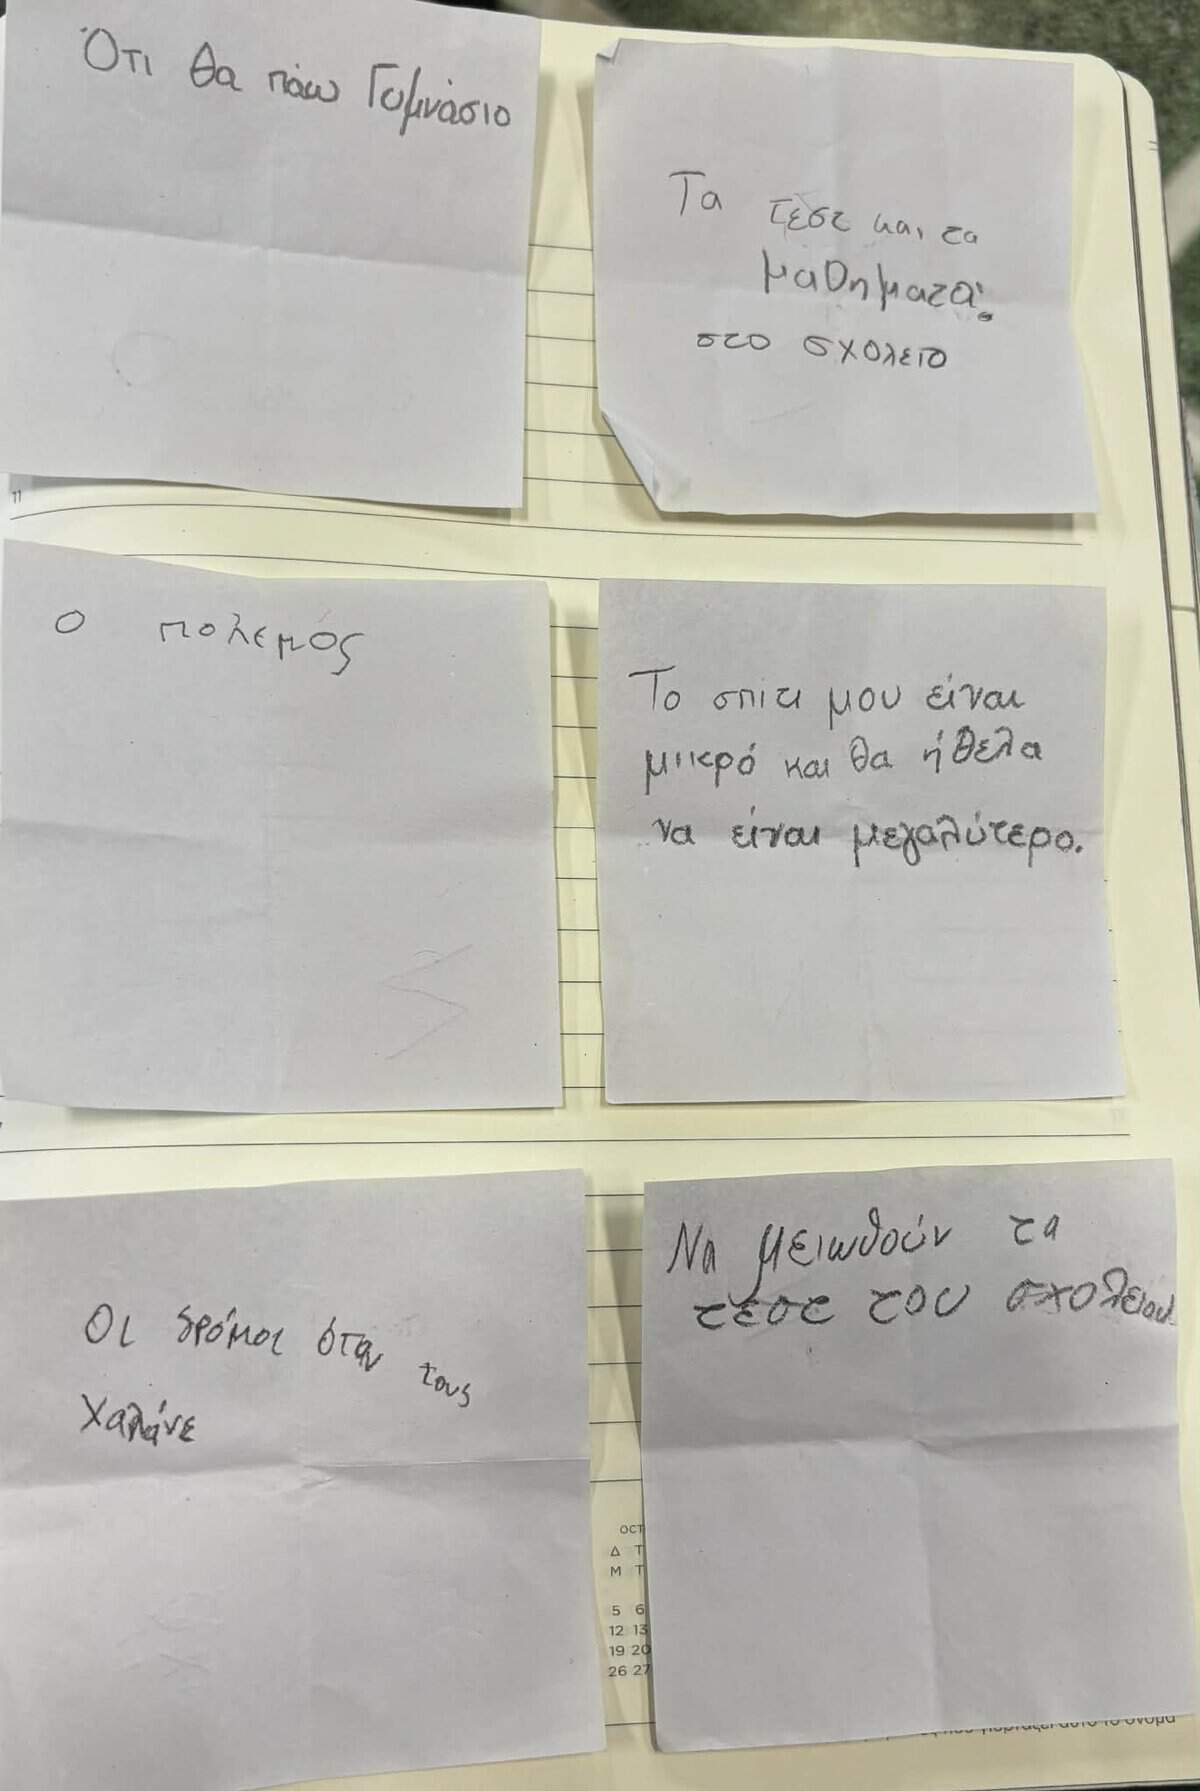 Ότι θα πάω Γυμνάσιο
Τα τεστ και τα
μαθηματα
στο σχολειο
11
Ο πολεμός
Το σπιτι μου είναι
μικρό και θα ήθελα
να είναι μεγαλύτερο.
Οι δρόμοι όταν τους
χαλάνε
Να μειωθούν τα
τεστ του σχολείου
OCT
Δ Τ
M T
5 6
12 13
19 20
26 27
αυτό το όνομα